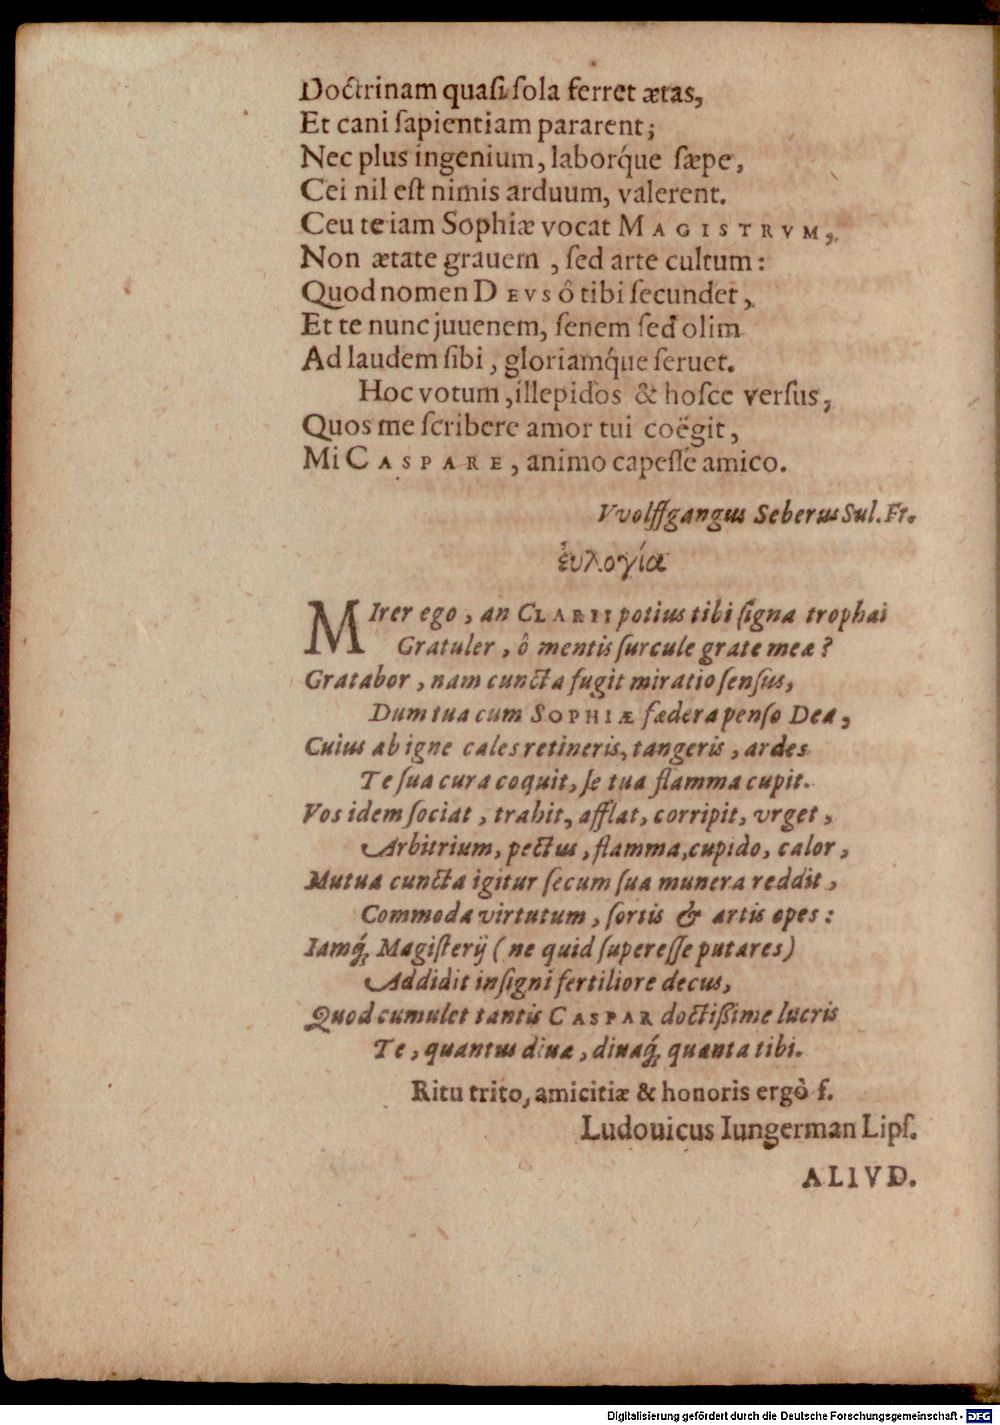 Doctrinam quasi sola ferret ætas,
Et cani sapientiam pararent;
Nec plus ingenium, laborq́ue sæpe,
Cei nil est nimis arduum, valerent.
Ceu te iam Sophiæ vocat MAGISTRVM,
Non ætate grauem, sed arte cultum:
Quod nomen DEVS ô tibi secundet,
Et te nunc juuenem, senem sed olim
Ad laudem sibi, gloriamq́ue seruet.
Hoc votum, illepidos & hosce versus,
Quos me scribere amor tui coëgit,
Mi CASPARE, animo capesse amico.
VVolffgangus Seberus Sul. Fr.
ἐυλογία
MIrer ego, an CLARII potius tibi signa trophæi
Gratuler, ô mentis surcule grate meæ?
Gratabor, nam cuncta fugit miratio sensus,
Dum tua cum SOPHIÆ fœdera penso Dea,
Cuius ab igne cales retineris, tangeris, ardes
Te sua cura coquit, se tua flamma cupit.
Vos idem sociat, trahit, afflat, corripit, vrget,
Arbitrium, pectus, flamma, cupido, calor,
Mutua cuncta igitur secum sua munera reddit,
Commoda virtutum, sortis & artis opes:
Iamq́; Magisterij (ne quid superesse putares)
Addidit insigni fertiliore decus,
Quod cumulet tantis CASPAR doctißime lucris
Te, quantus diuæ, diuaq́; quanta tibi.
Ritu trito, amicitiæ & honoris ergò f.
Ludouicus Iungerman Lips.
ALIVD.
Digitalisierung gefördert durch die Deutsche Forschungsgemeinschaft - DFG